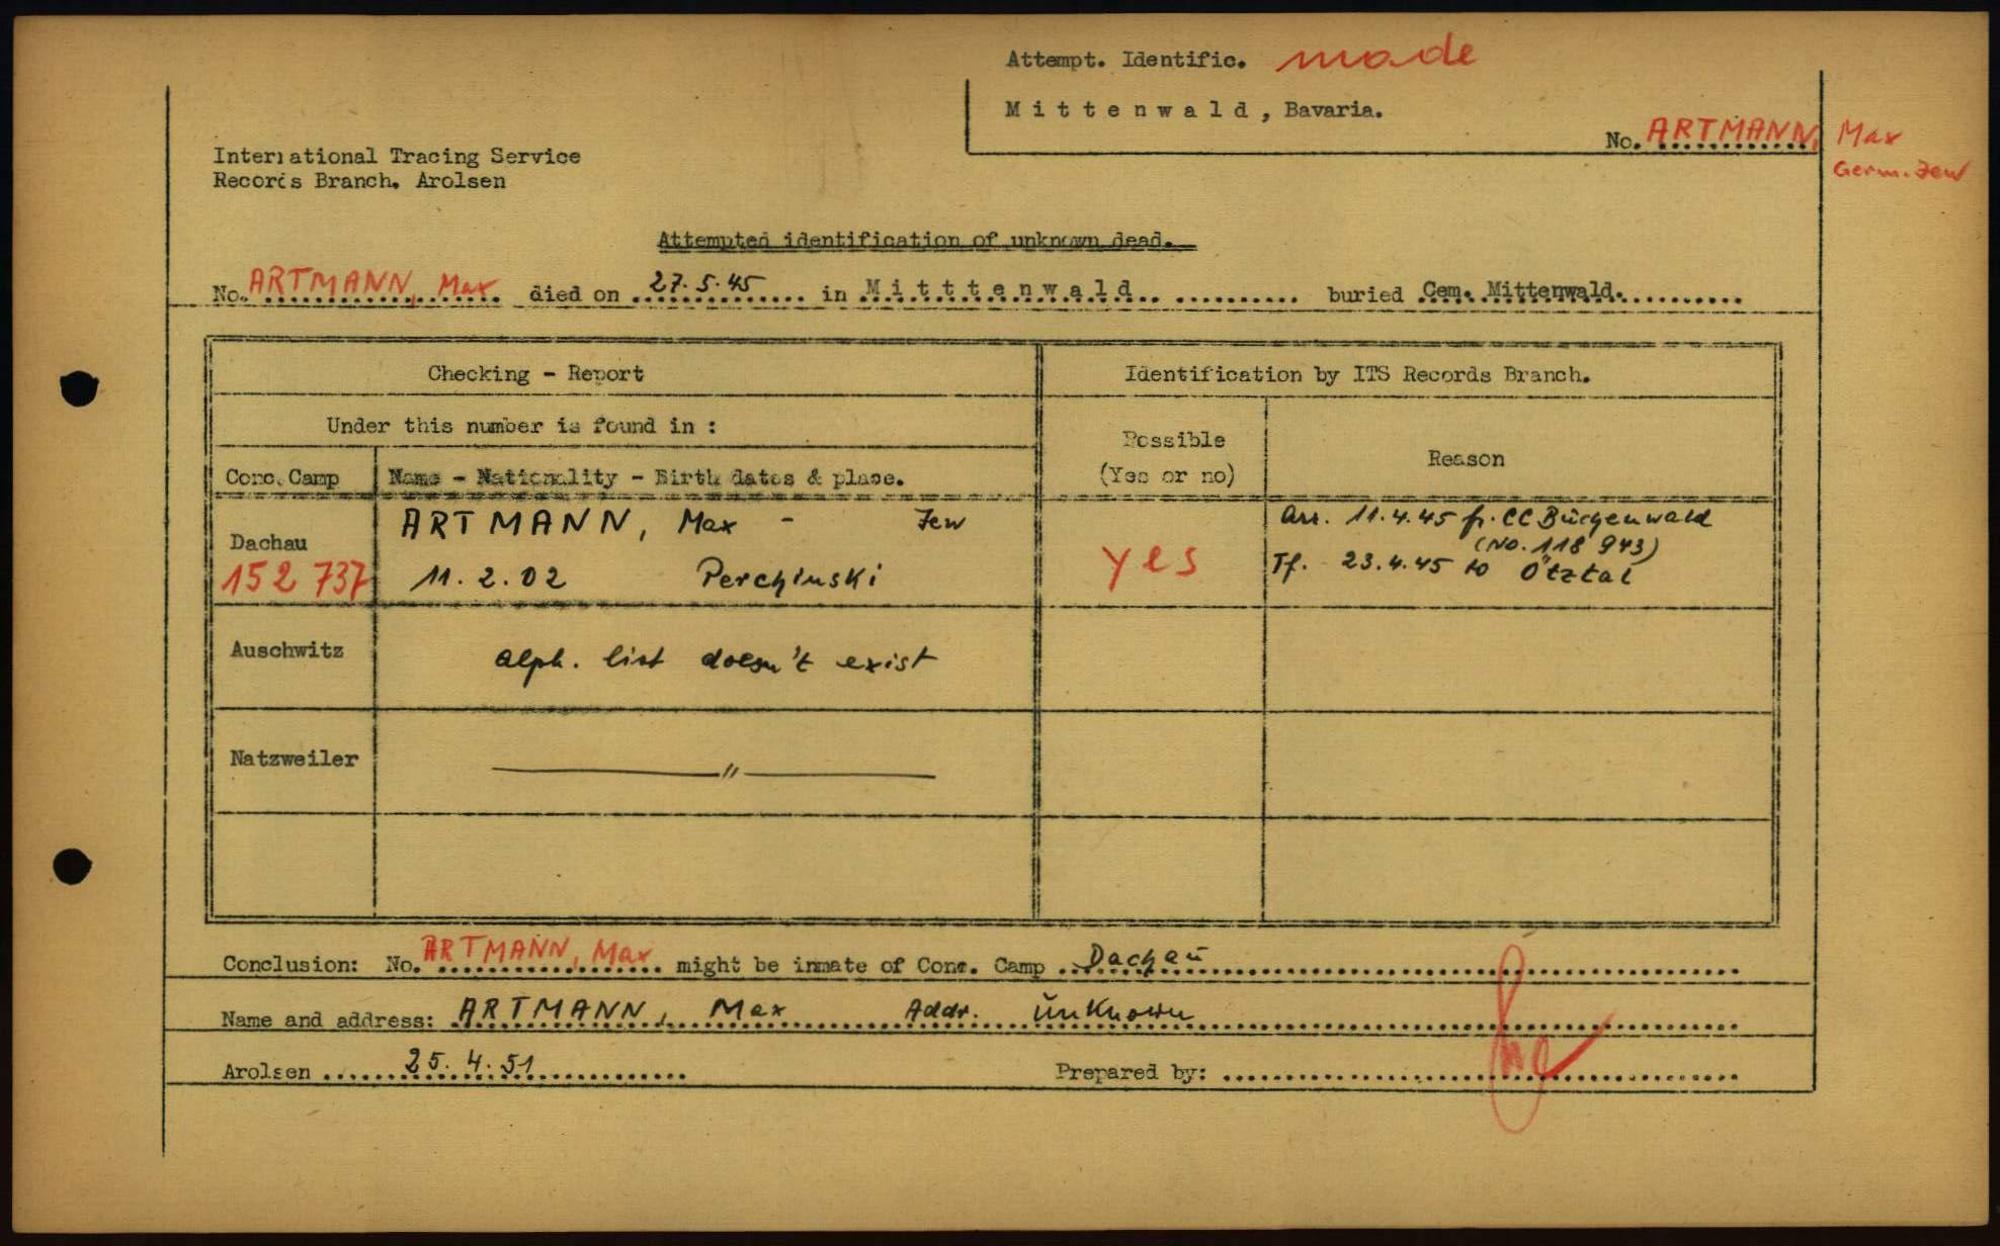 Attempt. Identific. made
M i t t e n w a l d , Bavaria.
No. ARTMANN, Max
Germ. Jew
International Tracing Service
Records Branch. Arolsen
Attempted identification of unknown dead.
No. ARTMANN, Max died on 27.5.45 in M i t t t e n w a l d buried Cem. Mittenwald.
Checking - Report
Identification by ITS Records Branch.
Under this number is found in :
Possible
(Yes or no)
Reason
Conc. Camp
Name - Nationality - Birth dates & place.
Dachau
152 737
ARTMANN, Max - Jew
11.2.02 Perchinski
yes
Arr. 11.4.45 fr. CC Buchenwald
(No. 118 943)
Tf. 23.4.45 to Ötztal
Auschwitz
alph. list doesn't exist
Natzweiler
—— " ——
Conclusion: No. ARTMANN, Max might be inmate of Conc. Camp Dachau
Name and address: ARTMANN, Max Addr. unknown
Arolsen 25.4.51
Prepared by: